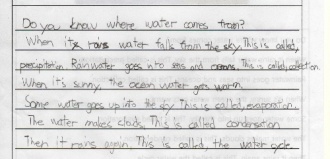 Do you know where water comes from?
When it rains water falls from the sky. This is called,
precipitation Rainwater goes into seas and oceans. This is called, collection
When it's sunny, the ocean water gets warm.
Some water goes up into the sky This is called, evaporation.
The water makes clouds, This is called condensation
Then it rains again. This is called, the water cycle.